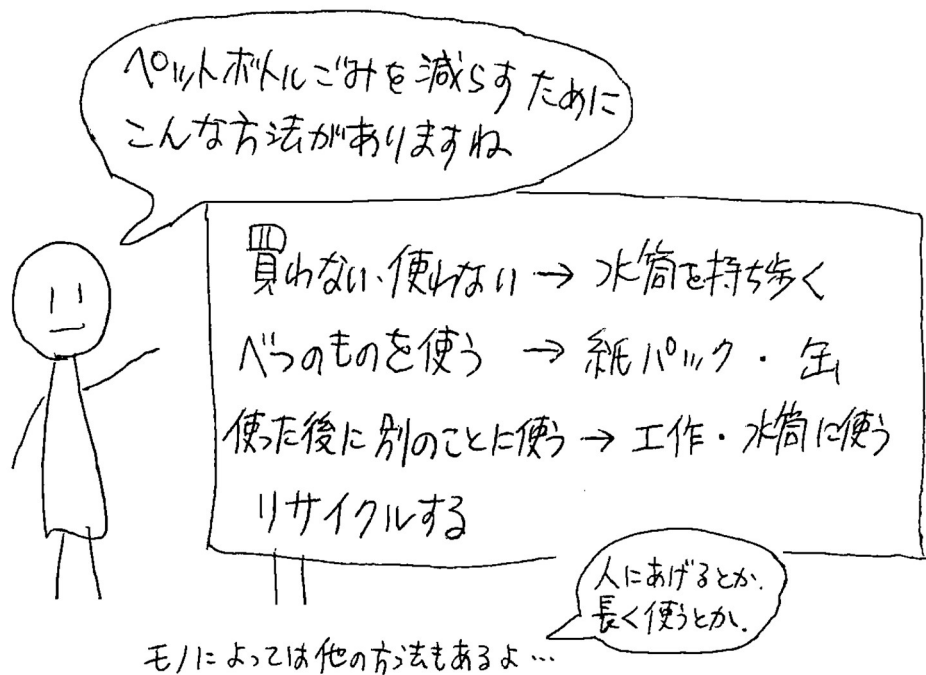 ペットボトルごみを減らすために
こんな方法がありますね
買わない、使わない → 水筒を持ち歩く
べつのものを使う → 紙パック・缶
使った後に別のことに使う → 工作・水筒に使う
リサイクルする
人にあげるとか、
長く使うとか、
モノによっては他の方法もあるよ…